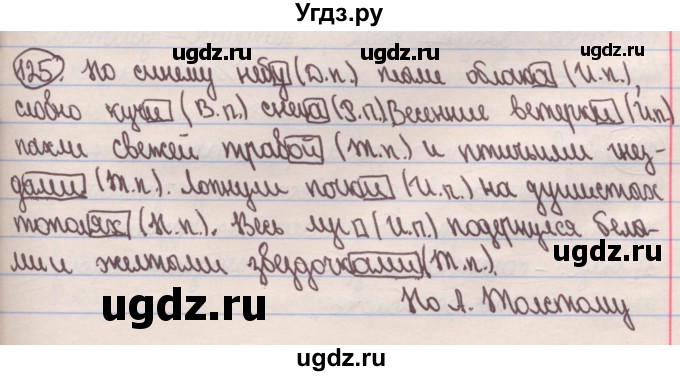 Угдз.ру
ugdz.ru ugdz.ru
125. По синему небу (Д.п.) плыли облака (И.п.),
словно кучи (В.п.) снега (Р.п.). Весенние ветерки (И.п.)
пахли свежей травой (Т.п.) и птичьими гнёз-
дами (Т.п.). Лопнули почки (И.п.) на душистых
тополях (П.п.). Весь луг (И.п.) подернулся белы-
ми и желтыми звездочками (Т.п.).
ugdz.ru
По А. Толстому
ugdz.ru ugdz.ru
ugdz.ru